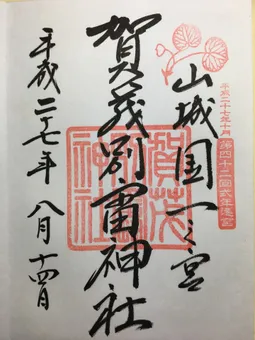 平成二十七年十月
第四十二回式年遷宮
山城国一之宮
賀茂別雷神社
平成二十七年 八月 十四日